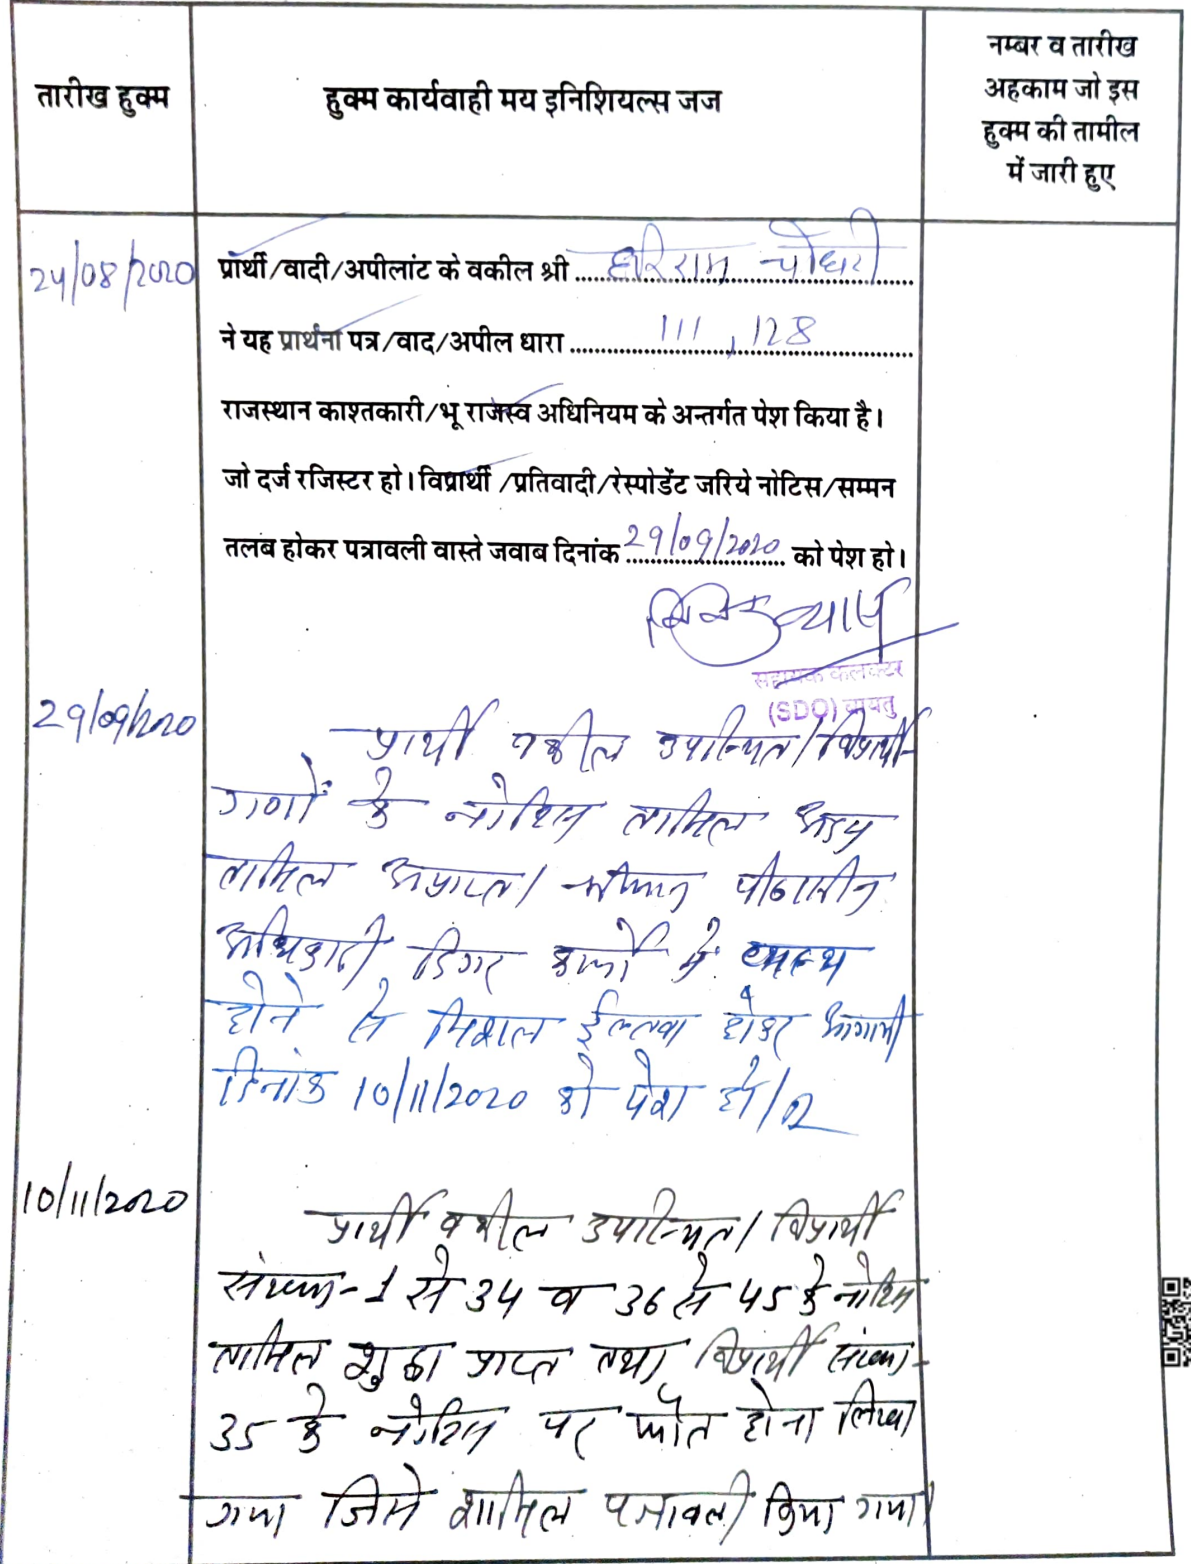 तारीख हुक्म
हुक्म कार्यवाही मय इनिशियल्स जज
नम्बर व तारीख
अहकाम जो इस
हुक्म की तामील
में जारी हुए
24/08/2020
प्रार्थी/वादी/अपीलांट के वकील श्री हरिराम चौधरी
ने यह प्रार्थना पत्र/वाद/अपील धारा 111, 128
राजस्थान काश्तकारी/भू राजस्व अधिनियम के अन्तर्गत पेश किया है।
जो दर्ज रजिस्टर हो। विप्रार्थी /प्रतिवादी/रेस्पोडेंट जरिये नोटिस/सम्मन
तलब होकर पत्रावली वास्ते जवाब दिनांक 29/09/2020 को पेश हो।
सहायक कलक्टर
(SDO) बायतु
29/09/2020
प्रार्थी वकील उपस्थित। विप्रार्थी-
गणों के नोटिस तामिल अदम
तामिल अप्राप्त। श्रीमान पीठासीन
अधिकारी डिगर कार्यो में व्यस्थ
होने से मिशल ईल्तवा होकर आगामी
दिनांक 10/11/2020 को पेश हो।
10/11/2020
प्रार्थी वकील उपस्थित। विप्रार्थी
संख्या-1 से 34 व 36 से 45 के नोटिस
तामिल शुदा प्राप्त तथा विप्रार्थी संख्या-
35 के नोटिस पर फौत होना लिखा
गया जिसे शामिल पत्रावली किया गया।